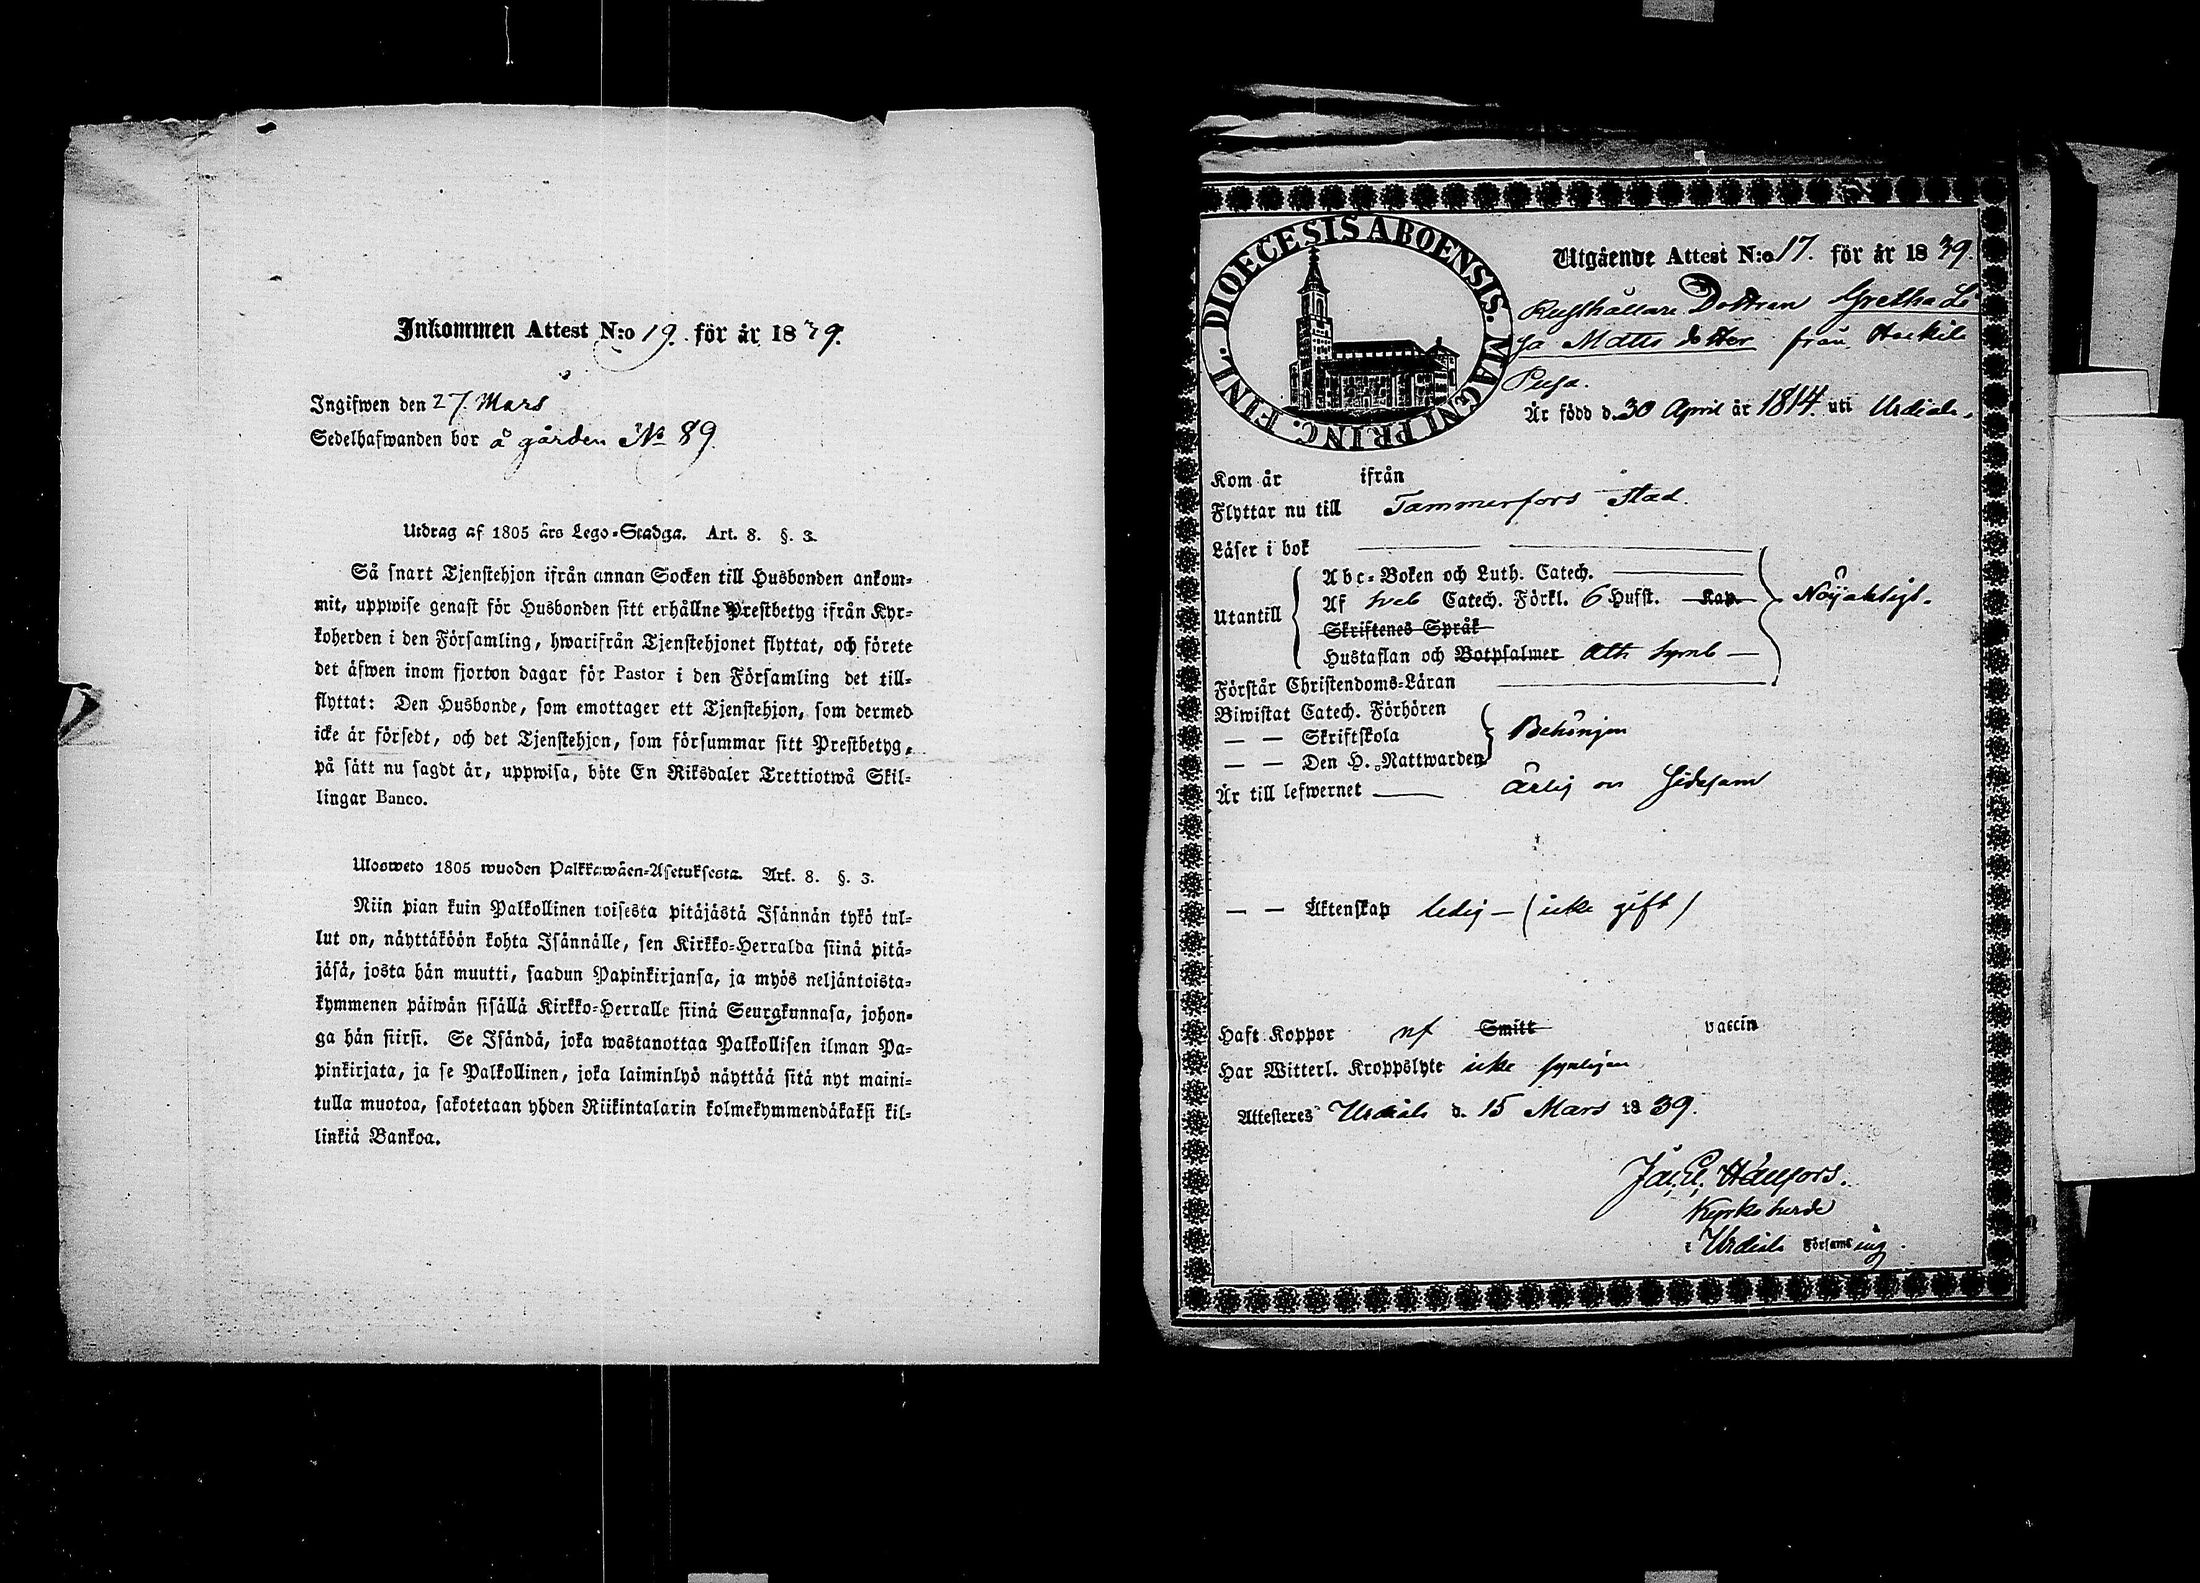 Inkommen Attest N:o 19. för år 1839.
Ingifwen den 27. Mars
Sedelhafwanden bor å gården No 89.
Utdrag af 1805 års Lego-Stadga. Art. 8. §. 3.
Så snart Tjenstehjon ifrån annan Socken till Husbonden ankom-
mit, uppwise genast för Husbonden sitt erhållne Prestbetyg ifrån Kyr-
koherden i den Församling, hwarifrån Tjenstehjonet flyttat, och förete
det äfwen inom fjorton dagar för Pastor i den Församling det till-
flyttat: Den Husbonde, som emottager ett Tjenstehjon, som dermed
icke är försedt, och det Tjenstehjon, som försummar sitt Prestbetyg,
på sätt nu sagdt är, uppwisa, böte En Riksdaler Trettiotwå Skil-
lingar Banco.
Ulosweto 1805 wuoden Palkkawäen-Asetuksesta. Art. 8. §. 3.
Niin pian kuin Palkollinen toisesta pitäjästä Isännän tykö tul-
lut on, näyttäköön kohta Isännälle, sen Kirkko-Herralda siinä pitä-
jäsä, josta hän muutti, saadun Papinkirjansa, ja myös neljäntoista-
kymmenen päiwän sisällä Kirkko-Herralle siinä Seurgkunnasa, johon-
ga hän siirsi. Se Isändä, joka wastanottaa Palkollisen ilman Pa-
pinkirjata, ja se Palkollinen, joka laiminlyö näyttää sitä nyt maini-
tulla muotoa, sakotetaan yhden Riikintalarin kolmekymmendäkaksi kil-
linkiä Bankoa.
DIOECESIS ABOENSIS. MAGNI PRINC. FINL.
Utgående Attest N:o 17. för år 1839.
Rusthållare Dottren Gretha Li
sa Matts dotter från Heikilä
Pusa.
Är född d. 30 April år 1814. uti Urdiala.
Kom år ifrån
Flyttar nu till Tammerfors Stad.
Läser i bok
Abc-Boken och Luth. Catech.
Utantill Af Sveb Catech. Förkl. 6 Hufst. Kap. Nöjaktigt.
Skriftenes Språk
Hustaflan och Botpsalmer Ath Symb
Förstår Christendoms-Läran
Biwistat Catech. Förhören
— — Skriftskola Behörigen
— — Den H. Nattwarden
Är till lefwernet ärlig och Sedesam
— — Äktenskap ledig — (icke gift)
Haft Koppor nf Smitt vaccin
Har Witterl. Kroppslyte icke synligen
Attesteres Urdiala d. 15 Mars 1839.
Jac. El. Hällfors.
Kyrkoherde
i Urdiala Församling.